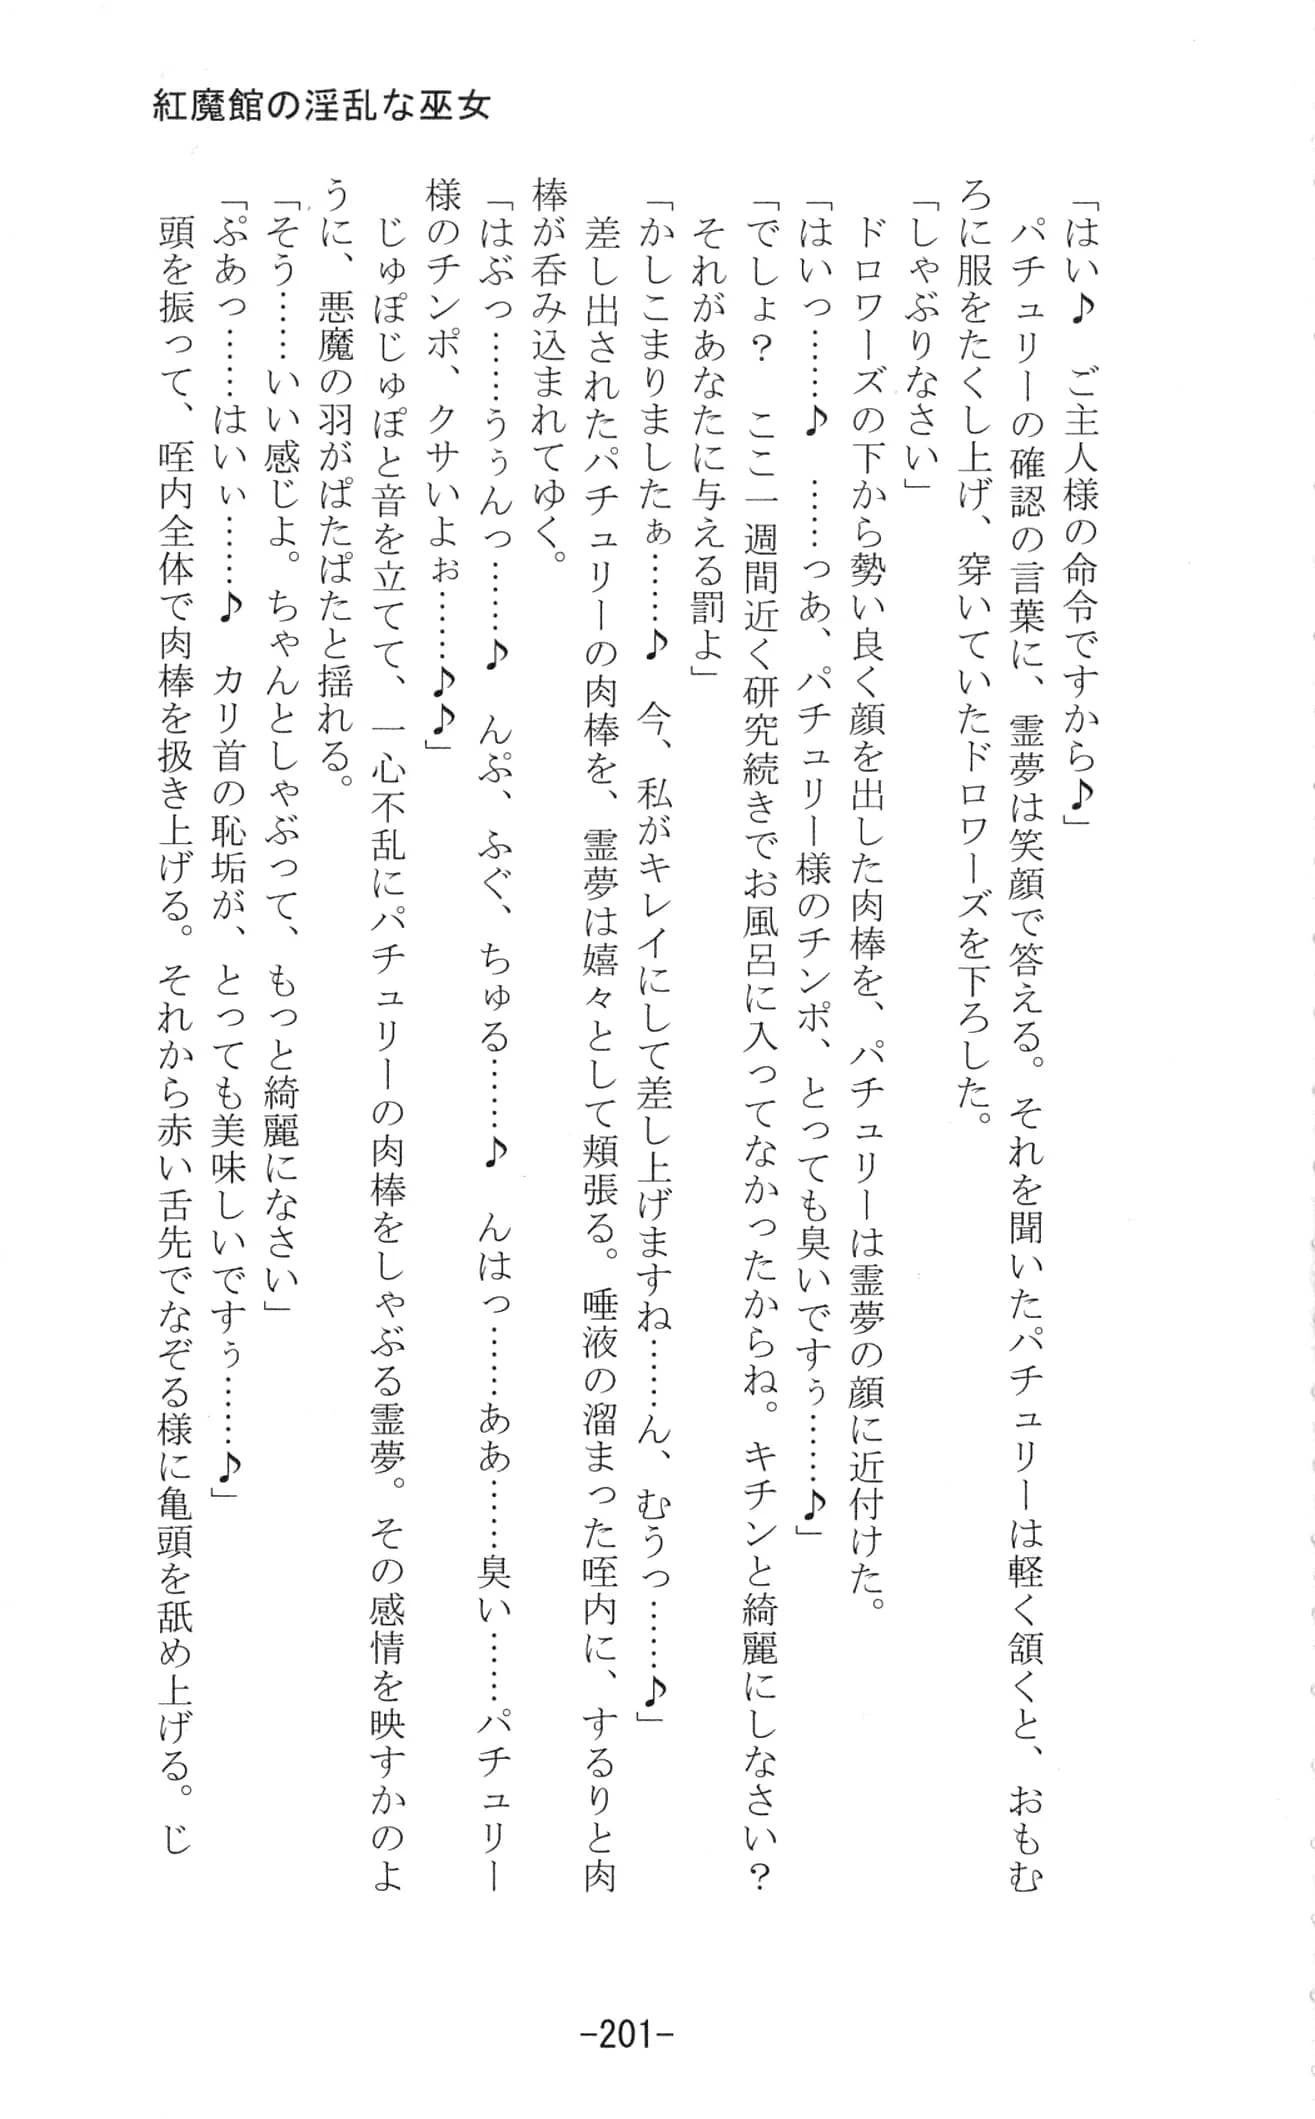 紅魔館の淫乱な巫女
「はい♪　ご主人様の命令ですから♪」
　パチュリーの確認の言葉に、霊夢は笑顔で答える。それを聞いたパチュリーは軽く頷くと、おもむ
ろに服をたくし上げ、穿いていたドロワーズを下ろした。
「しゃぶりなさい」
　ドロワーズの下から勢い良く顔を出した肉棒を、パチュリーは霊夢の顔に近付けた。
「はいっ……♪　……っあ、パチュリー様のチンポ、とっても臭いですぅ……♪」
「でしょ？　ここ一週間近く研究続きでお風呂に入ってなかったからね。キチンと綺麗にしなさい？
　それがあなたに与える罰よ」
「かしこまりましたぁ……♪　今、私がキレイにして差し上げますね……ん、むうっ……♪」
　差し出されたパチュリーの肉棒を、霊夢は嬉々として頬張る。唾液の溜まった咥内に、するりと肉
棒が呑み込まれてゆく。
「はぶっ……ううんっ……♪　んぷ、ふぐ、ちゅる……♪　んはっ……ああ……臭い……パチュリー
様のチンポ、クサいよぉ……♪♪」
　じゅぽじゅぽと音を立てて、一心不乱にパチュリーの肉棒をしゃぶる霊夢。その感情を映すかのよ
うに、悪魔の羽がぱたぱたと揺れる。
「そう……いい感じよ。ちゃんとしゃぶって、もっと綺麗になさい」
「ぷあっ……はいぃ……♪　カリ首の恥垢が、とっても美味しいですぅ……♪」
　頭を振って、咥内全体で肉棒を扱き上げる。それから赤い舌先でなぞる様に亀頭を舐め上げる。じ
-201-